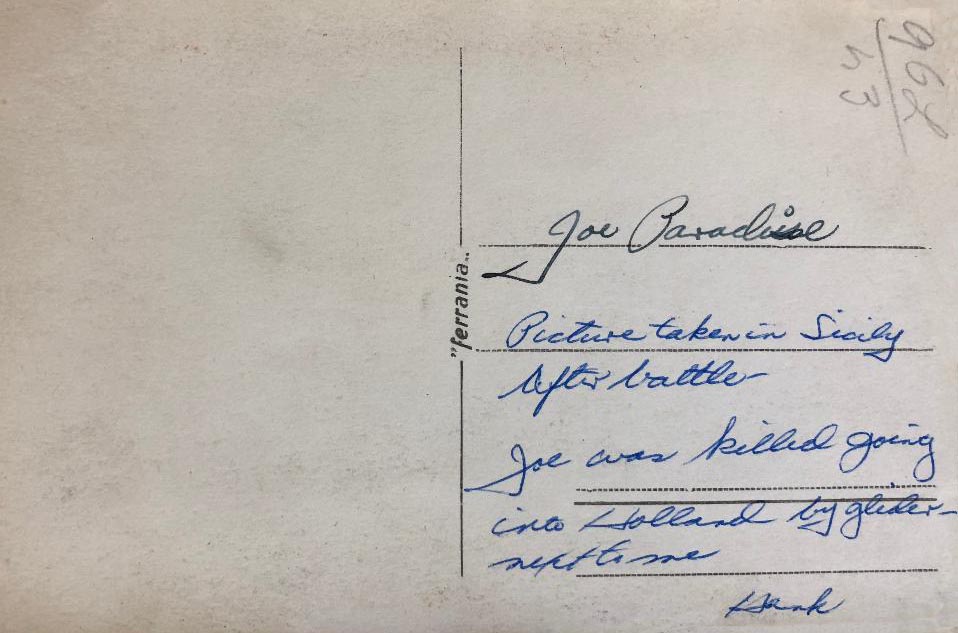 962
43
Joe Paradise
"ferrania"
Picture taken in Sicily
After battle-
Joe was killed going
into Holland by glider-
next to me
Hank